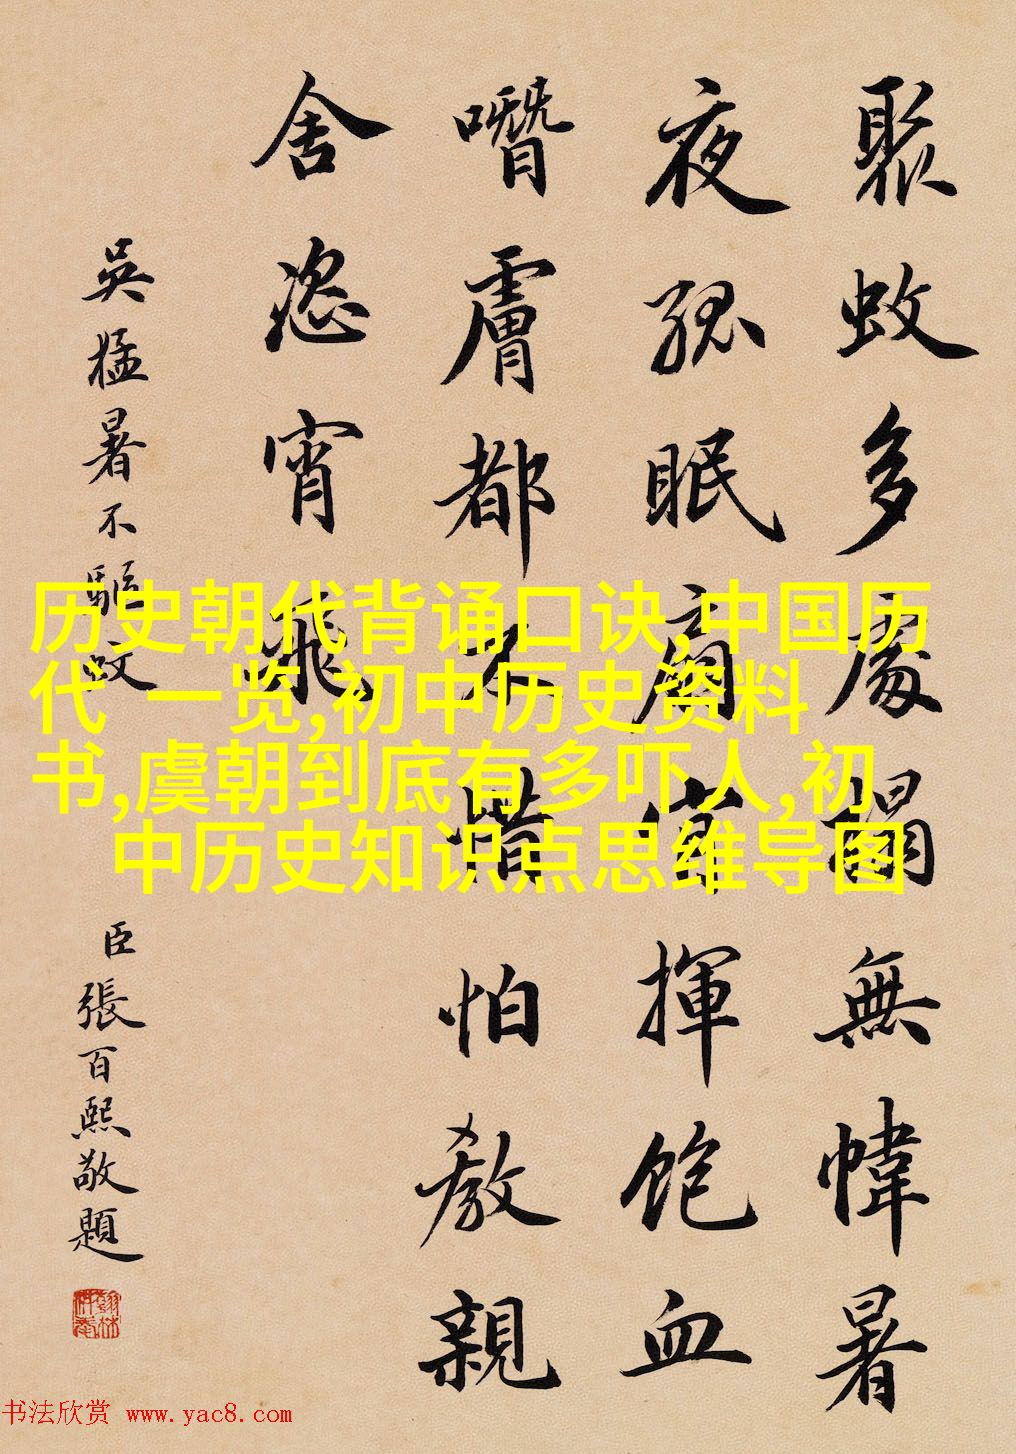 聚蚊多處榻無幃暑
夜孤眠扇揮飽血
噆膚都不惜怕教親
舍恣宵飛
吳猛暑不驅蚊
臣張百熙敬題
历史朝代背诵口诀,中国历
代 一览,初中历史资料
书,虞朝到底有多吓人,初
中历史知识点思维导图
书法欣赏 www.yac8.com